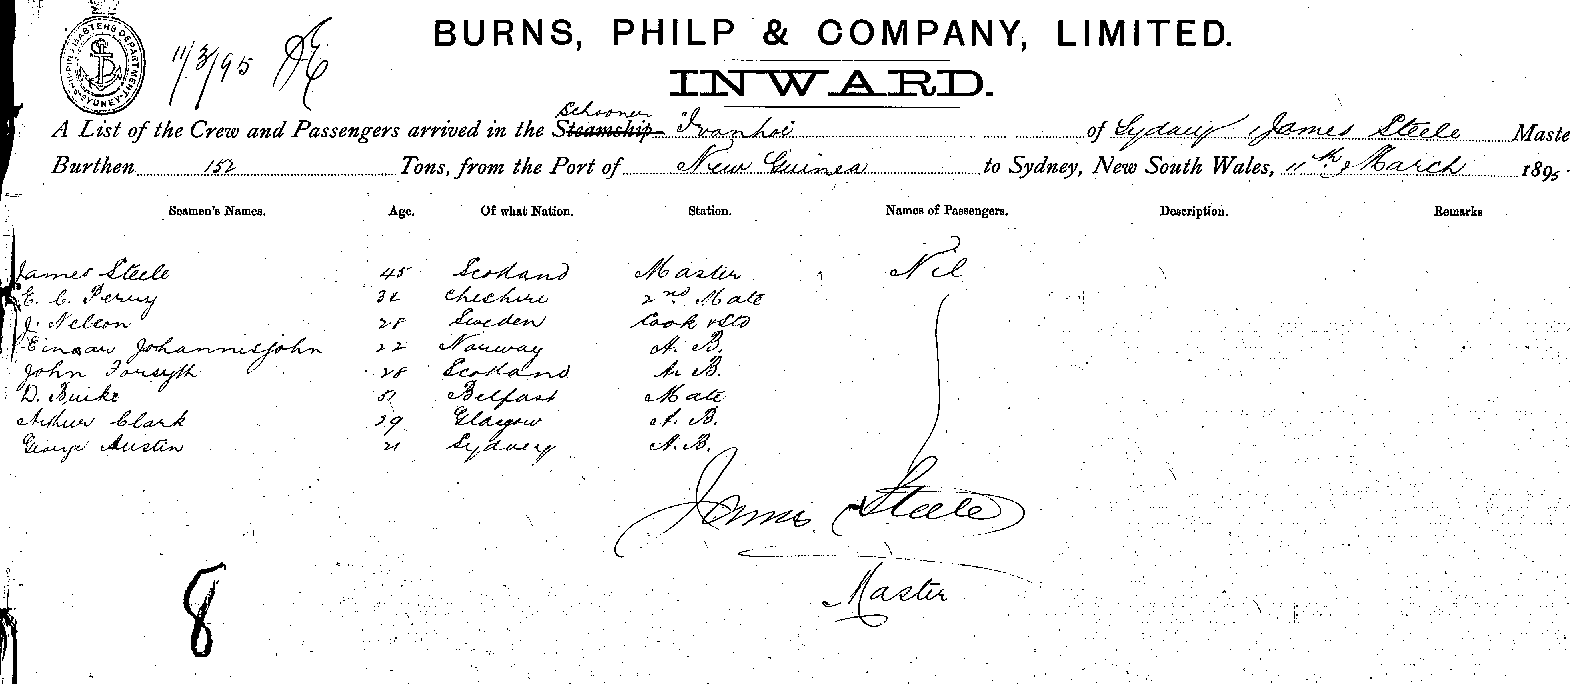 SHIPPING MASTERS DEPARTMENT SYDNEY
11/3/95
BURNS, PHILP & COMPANY, LIMITED.
INWARD.
Schooner
A List of the Crew and Passengers arrived in the Steamship Ivanhoe of Sydney James Steele Maste
Burthen 152 Tons, from the Port of New Guinea to Sydney, New South Wales, 11th March 1895.
Seamen's Names. Age. Of what Nation. Station. Names of Passengers. Description. Remarks
James Steele 45 Scotland Master Nil
E. C. Perry Cheshire 2nd Mate
J. Nelson 28 Sweden Cook & Std
Einaar Johannisjohn 22 Norway A. B.
John Forsyth 28 Scotland A. B.
D. Burke 51 Belfast Mate
Arthur Clark 29 Glasgow A. B.
George Austin 21 Sydney A. B.
James Steele
Master
8